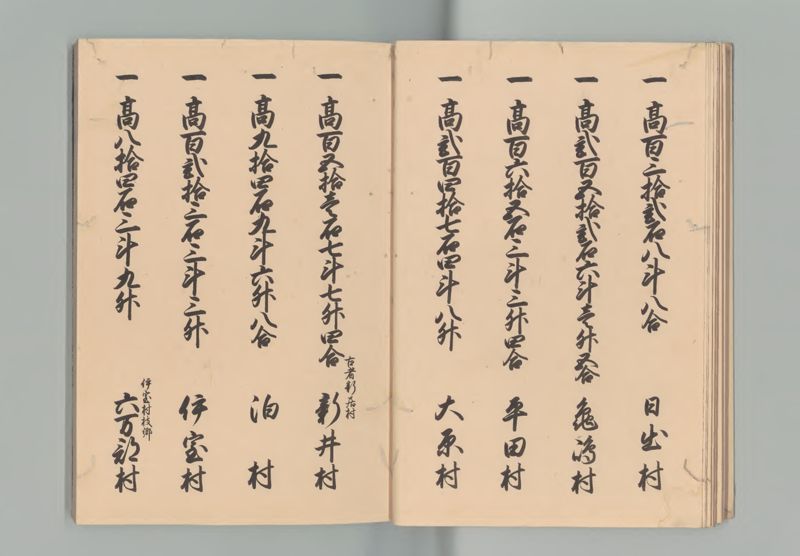 一 高百三拾弐石八斗八合 日出村
一 高弐百五拾弐石六斗壱升五合 亀嶋村
一 高百六拾五石三斗三升四合 平田村
一 高弐百四拾七石四斗八升 大原村
一 高百五拾壱石七斗七升四合 古者新居村 新井村
一 高九拾四石九斗六升八合 泊村
一 高百弐拾三石三斗三升 伊室村
一 高八拾四石三斗九升 伊室村枝郷 六万部村